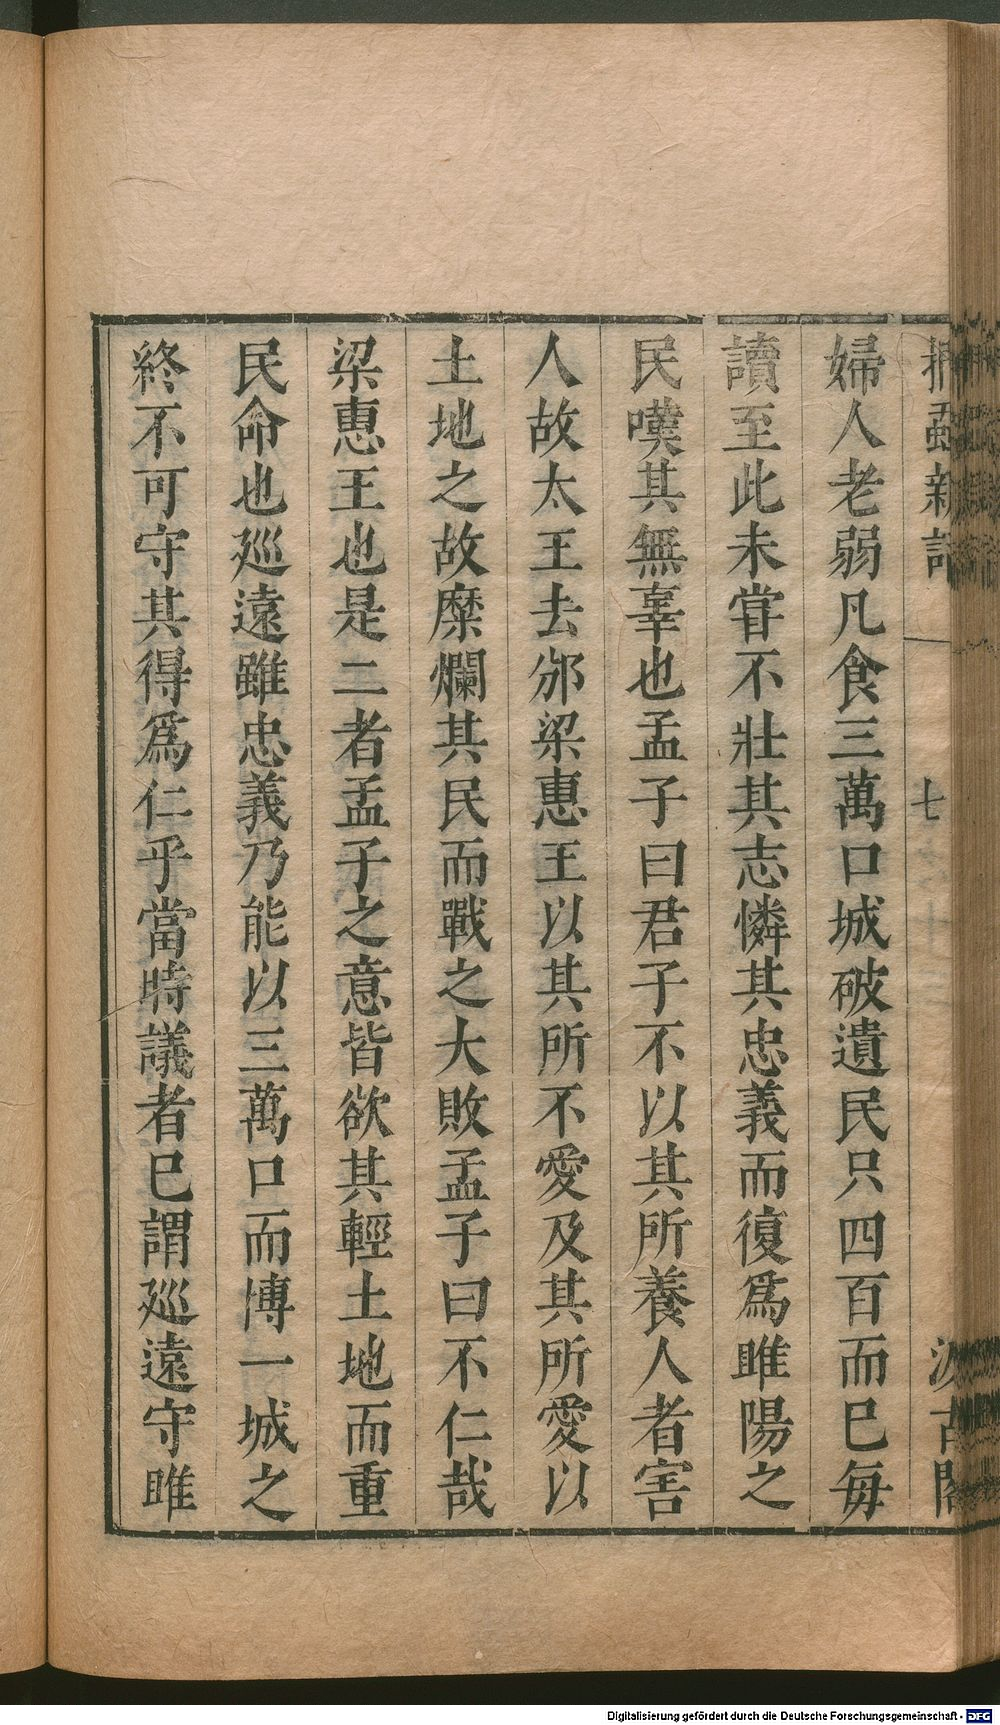 婦人老弱凡食三萬口城破遺民只四百而巳毎
讀至此未甞不壯其志憐其忠義而復爲雎陽之
民嘆其無辜也孟子曰君子不以其所養人者害
人故太王去邠梁惠王以其所不愛及其所愛以
土地之故糜爛其民而戰之大敗孟子曰不仁哉
梁惠王也是二者孟子之意皆欲其輕土地而重
民命也廵遠雖忠義乃能以三萬口而博一城之
終不可守其得爲仁乎當時議者巳謂廵遠守雎
新
七
古閣
Digitalisierung gefördert durch die Deutsche Forschungsgemeinschaft - DFG